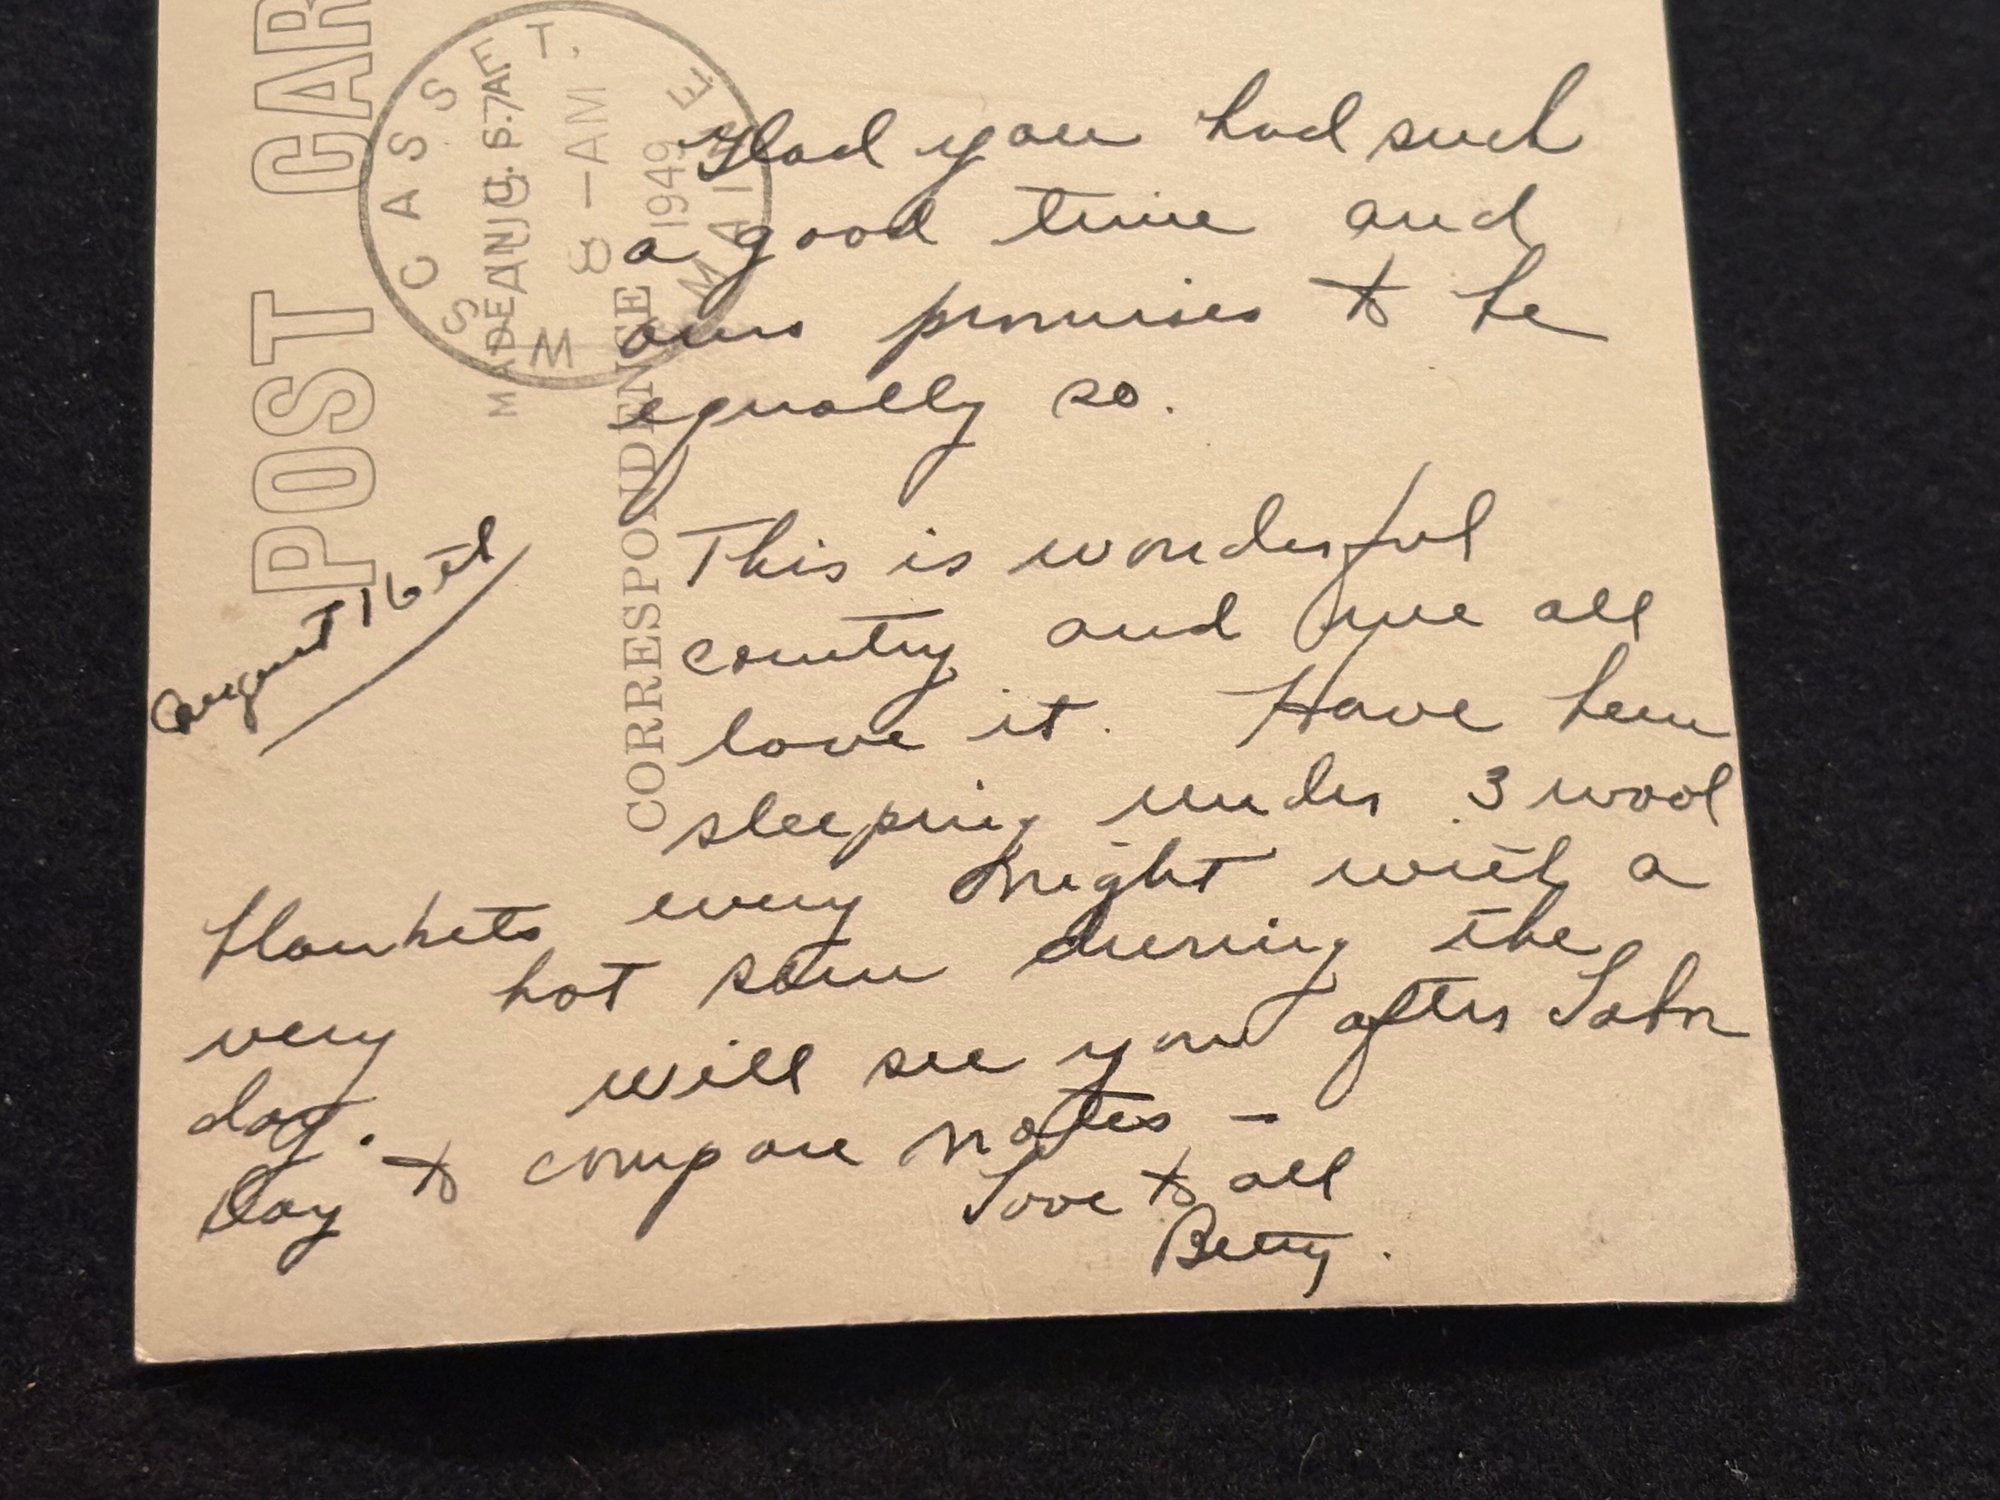 POST CAR
W. SCASSET.
MAINE
AUG. 17
8-AM
1949
MADE IN U.S.A.
CORRESPONDENCE
August 16th
Glad you had such
a good time and
ours promises to be
equally so.
This is wonderful
country and we all
love it. Have been
sleeping under 3 wool
blankets every night with a
very hot sun during the
day. will see you after Labor
Day to compare notes -
Love to all
Betty.